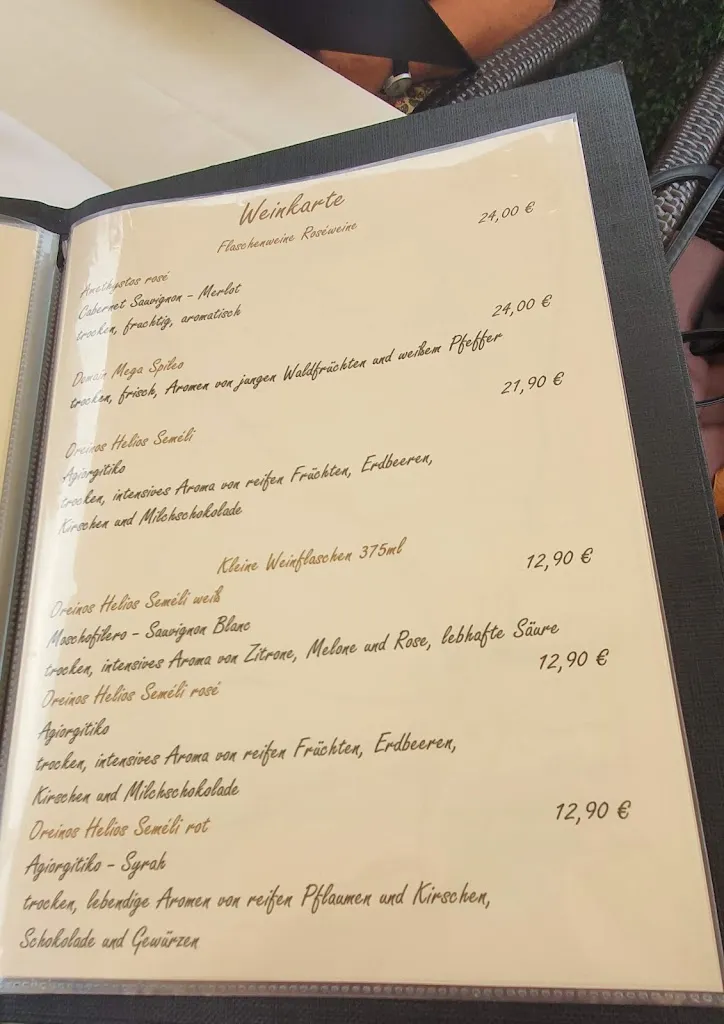 Weinkarte
Flaschenweine Roséweine
Amethystos rosé 24,00 €
Cabernet Sauvignon - Merlot
trocken, fruchtig, aromatisch
Domain Mega Spileo 24,00 €
trocken, frisch, Aromen von jungen Waldfrüchten und weißem Pfeffer
Oreinos Helios Seméli 21,90 €
Agiorgitiko
trocken, intensives Aroma von reifen Früchten, Erdbeeren,
Kirschen und Milchschokolade
Kleine Weinflaschen 375ml
Oreinos Helios Seméli weiß 12,90 €
Moschofilero - Sauvignon Blanc
trocken, intensives Aroma von Zitrone, Melone und Rose, lebhafte Säure
Oreinos Helios Seméli rosé 12,90 €
Agiorgitiko
trocken, intensives Aroma von reifen Früchten, Erdbeeren,
Kirschen und Milchschokolade
Oreinos Helios Seméli rot 12,90 €
Agiorgitiko - Syrah
trocken, lebendige Aromen von reifen Pflaumen und Kirschen,
Schokolade und Gewürzen